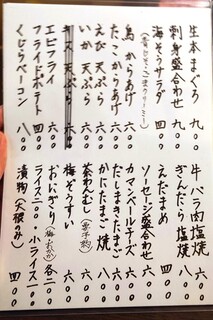 生本まぐろ 九〇〇
刺身盛合わせ 九〇〇
海そうサラダ 四〇〇
鳥からあげ 六〇〇
たこからあげ 六〇〇
えび天ぷら 六〇〇
いか天ぷら 六〇〇
キス天ぷら 六〇〇
エビフライ 六〇〇
フライドポテト 四〇〇
くじらベーコン 八〇〇
牛バラ肉塩焼 六〇〇
ぎんだら塩焼 六〇〇
えだまめ 四〇〇
ソーセージ盛合わせ 六〇〇
カマンベールチーズ 六〇〇
だしまきたまご 六〇〇
かにたまご焼 七〇〇
茶わんむし
梅ぞうすい 六〇〇
おにぎり(梅・おかか)各二〇〇
ライス二〇〇・小ライス一〇〇
漬物(大根のみ) 四〇〇